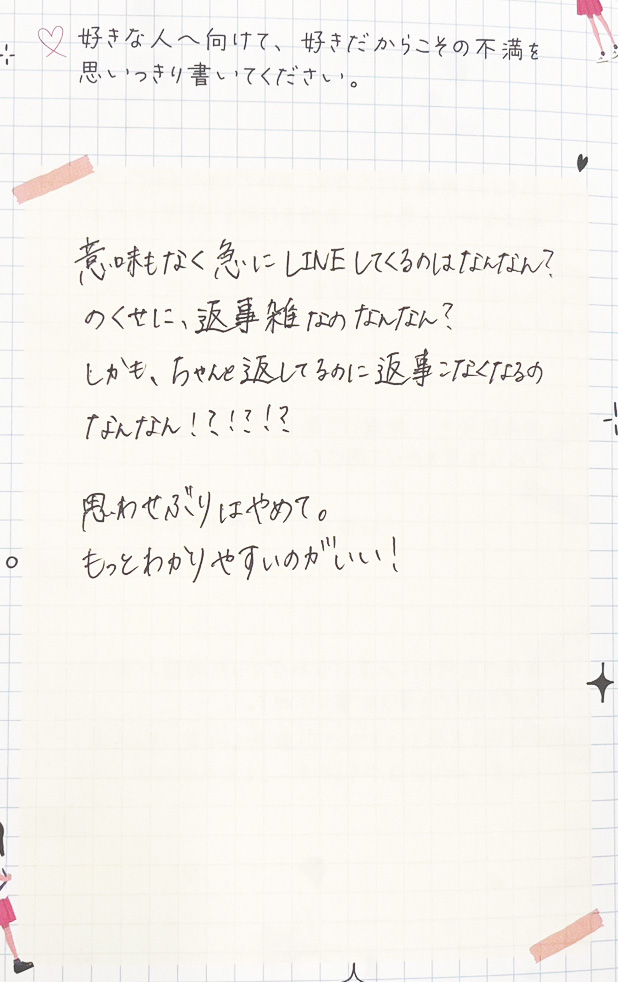 好きな人へ向けて、好きだからこその不満を
思いっきり書いてください。
意味もなく急にLINEしてくるのはなんなん?
のくせに、返事雑なのなんなん?
しかも、ちゃんと返してるのに返事こなくなるの
なんなん!?!?!?
思わせぶりはやめて。
もっとわかりやすいのがいい!